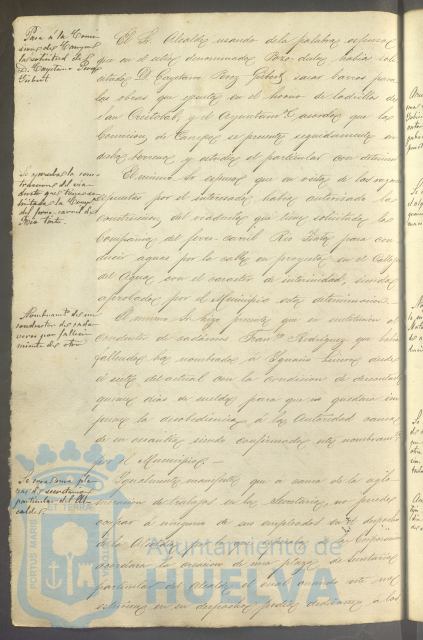 Pasa á la Comi
sion de Campos
la solicitud de
D. Cayetano Perez
Gisbert
El Sr. Alcalde usando de la palabra espuso
que en el sitio denominado Pozo dulce, habia soli
citado D. Cayetano Perez Gisbert sacar barros para
las obras que ejecuta en el horno de ladrillo de
San Cristobal, y el Ayuntamto acordó que la
Comision de Campos se presente seguidamente en
dichos terrenos y estudie el particular con
Se aprueba la cons
truccion del via
ducto que tiene so
licitada la Compa
del ferro-carril de
Rio tinto.
El mismo Sr. espuso que en vista de las razones
espuestas por el interesado, habia autorizado la
construccion del viaducto que tiene solicitada la
Compañia del ferro-carril Rio Tinto para con
ducir aguas por la calle en proyecto en el Callejon
del Agua con el caracter de interinidad, siendo
aprobada por el Municipio esta determinacion.
Nombramto de con
ductor de cada
veres por falleci
miento de otro
El mismo Sr. hizo presente que en sustitucion del
conductor de cadáveres Franco Rodriguez que habia
fallecido ha nombrado á Ignacio desde
el siete del actual con la condicion de
quince dias de sueldo para que no quedara im
pune la desobediencia á la Autoridad causa
de su cesantia, siendo confirmado este nombramto
por el Municipio.
Se crea una pla
za de escribano
particular del Al
calde.
Igualmente manifestó que á causa de la aglo
meracion de trabajos en la Secretaria, no puede
ocupar á ninguno de sus empleados en el despacho
de la Alcaldia, por lo que esperaba de la Corporacion
acordara la creacion de una plaza de
particular del Alcalde el cual cuando este no
estuviera en su despacho pudiera dedicarse á los
PORTUS MARIS ET TERRÆ
Ayuntamiento de
HUELVA